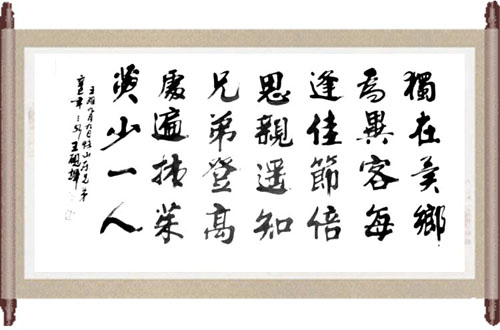 獨在異鄉
為異客每
逢佳節倍
思親遥知
兄弟登高
處遍插茱
萸少一人
王維九月九日憶山東兄弟